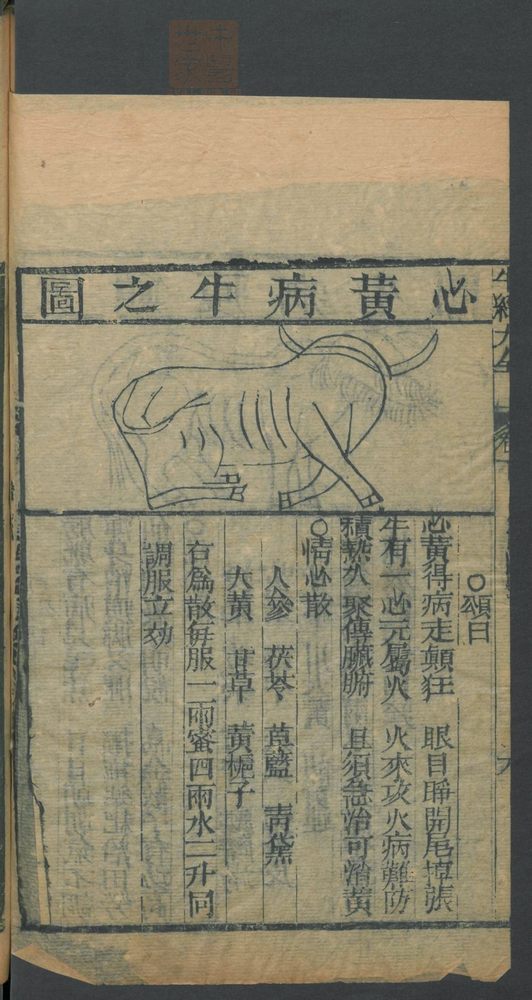 心黃病牛之圖
○頌曰
心黃得病走顛狂　眼目睜開尾撐張
牛有一心元屬火　火來攻火病難防
積熱久聚傳臟腑　且須急治可消黃
○清心散
人參　茯苓　草藍　青黛
大黃　甘草　黃梔子
右爲散每服二兩蜜四兩水二升同
調服立効